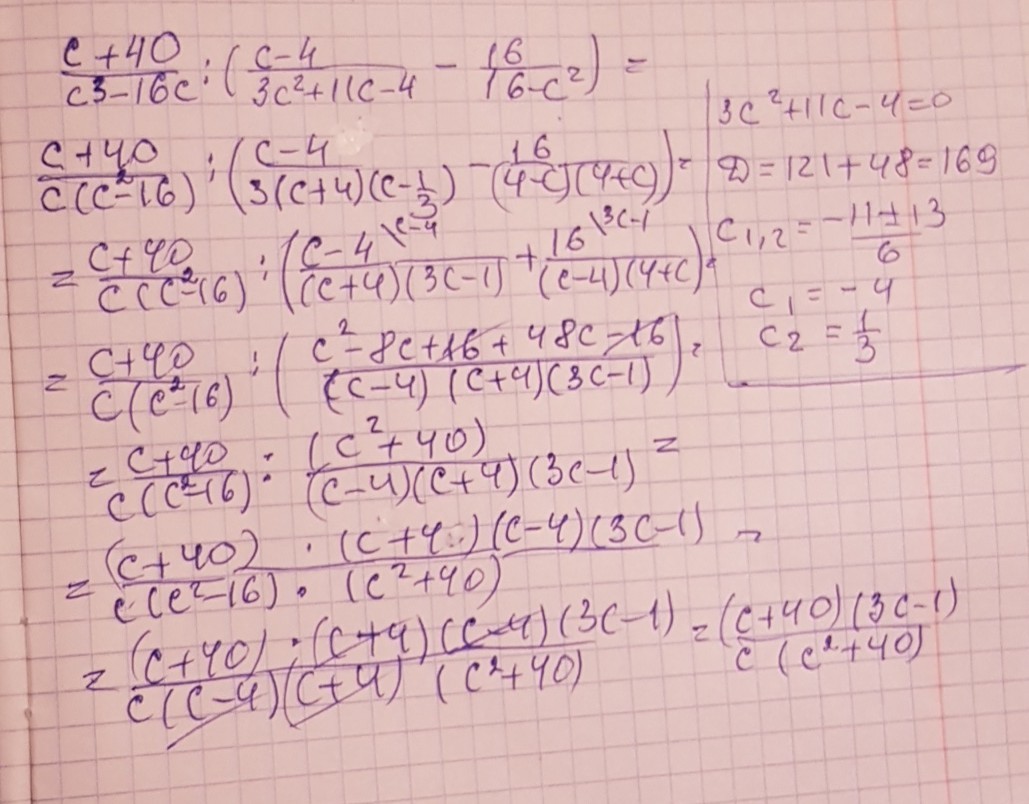 (c+40)/(c³-16c) : ((c-4)/(3c²+11c-4) - 16/(16-c²)) =
(c+40)/(c(c²-16)) : ((c-4)/(3(c+4)(c-1/3)) - 16/((4-c)(4+c))) =
= (c+40)/(c(c²-16)) : ((c-4\c-4)/((c+4)(3c-1)) + (16\3c-1)/((c-4)(4+c))) =
= (c+40)/(c(c²-16)) : ((c²-8c+16+48c-16)/((c-4)(c+4)(3c-1))) =
= (c+40)/(c(c²-16)) : (c²+40)/((c-4)(c+4)(3c-1)) =
= ((c+40) · (c+4)(c-4)(3c-1))/(c(c²-16) · (c²+40)) =
= ((c+40) · (c+4)(c-4)(3c-1))/(c(c-4)(c+4)(c²+40)) = ((c+40)(3c-1))/(c(c²+40))
3c²+11c-4=0
D=121+48=169
c₁,₂=(-11±13)/6
c₁=-4
c₂=1/3